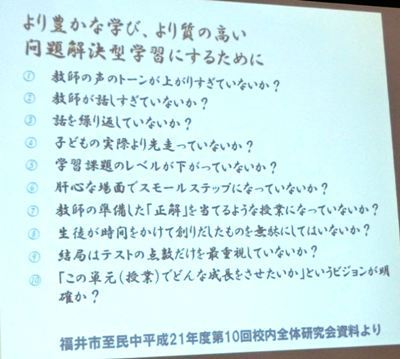 より豊かな学び、より質の高い
問題解決型学習にするために
① 教師の声のトーンが上がりすぎていないか?
② 教師が話しすぎていないか?
③ 話を繰り返していないか?
④ 子どもの実際より先走っていないか?
⑤ 学習課題のレベルが下がっていないか?
⑥ 肝心な場面でスモールステップになっていないか?
⑦ 教師の準備した「正解」を当てるような授業になっていないか?
⑧ 生徒が時間をかけて創りだしたものを無駄にしてはいないか?
⑨ 結局はテストの点数だけを最重視していないか?
⑩ 「この単元(授業)でどんな成長をさせたいか」というビジョンが明
確か?
福井市至民中平成21年度第10回校内全体研究会資料より